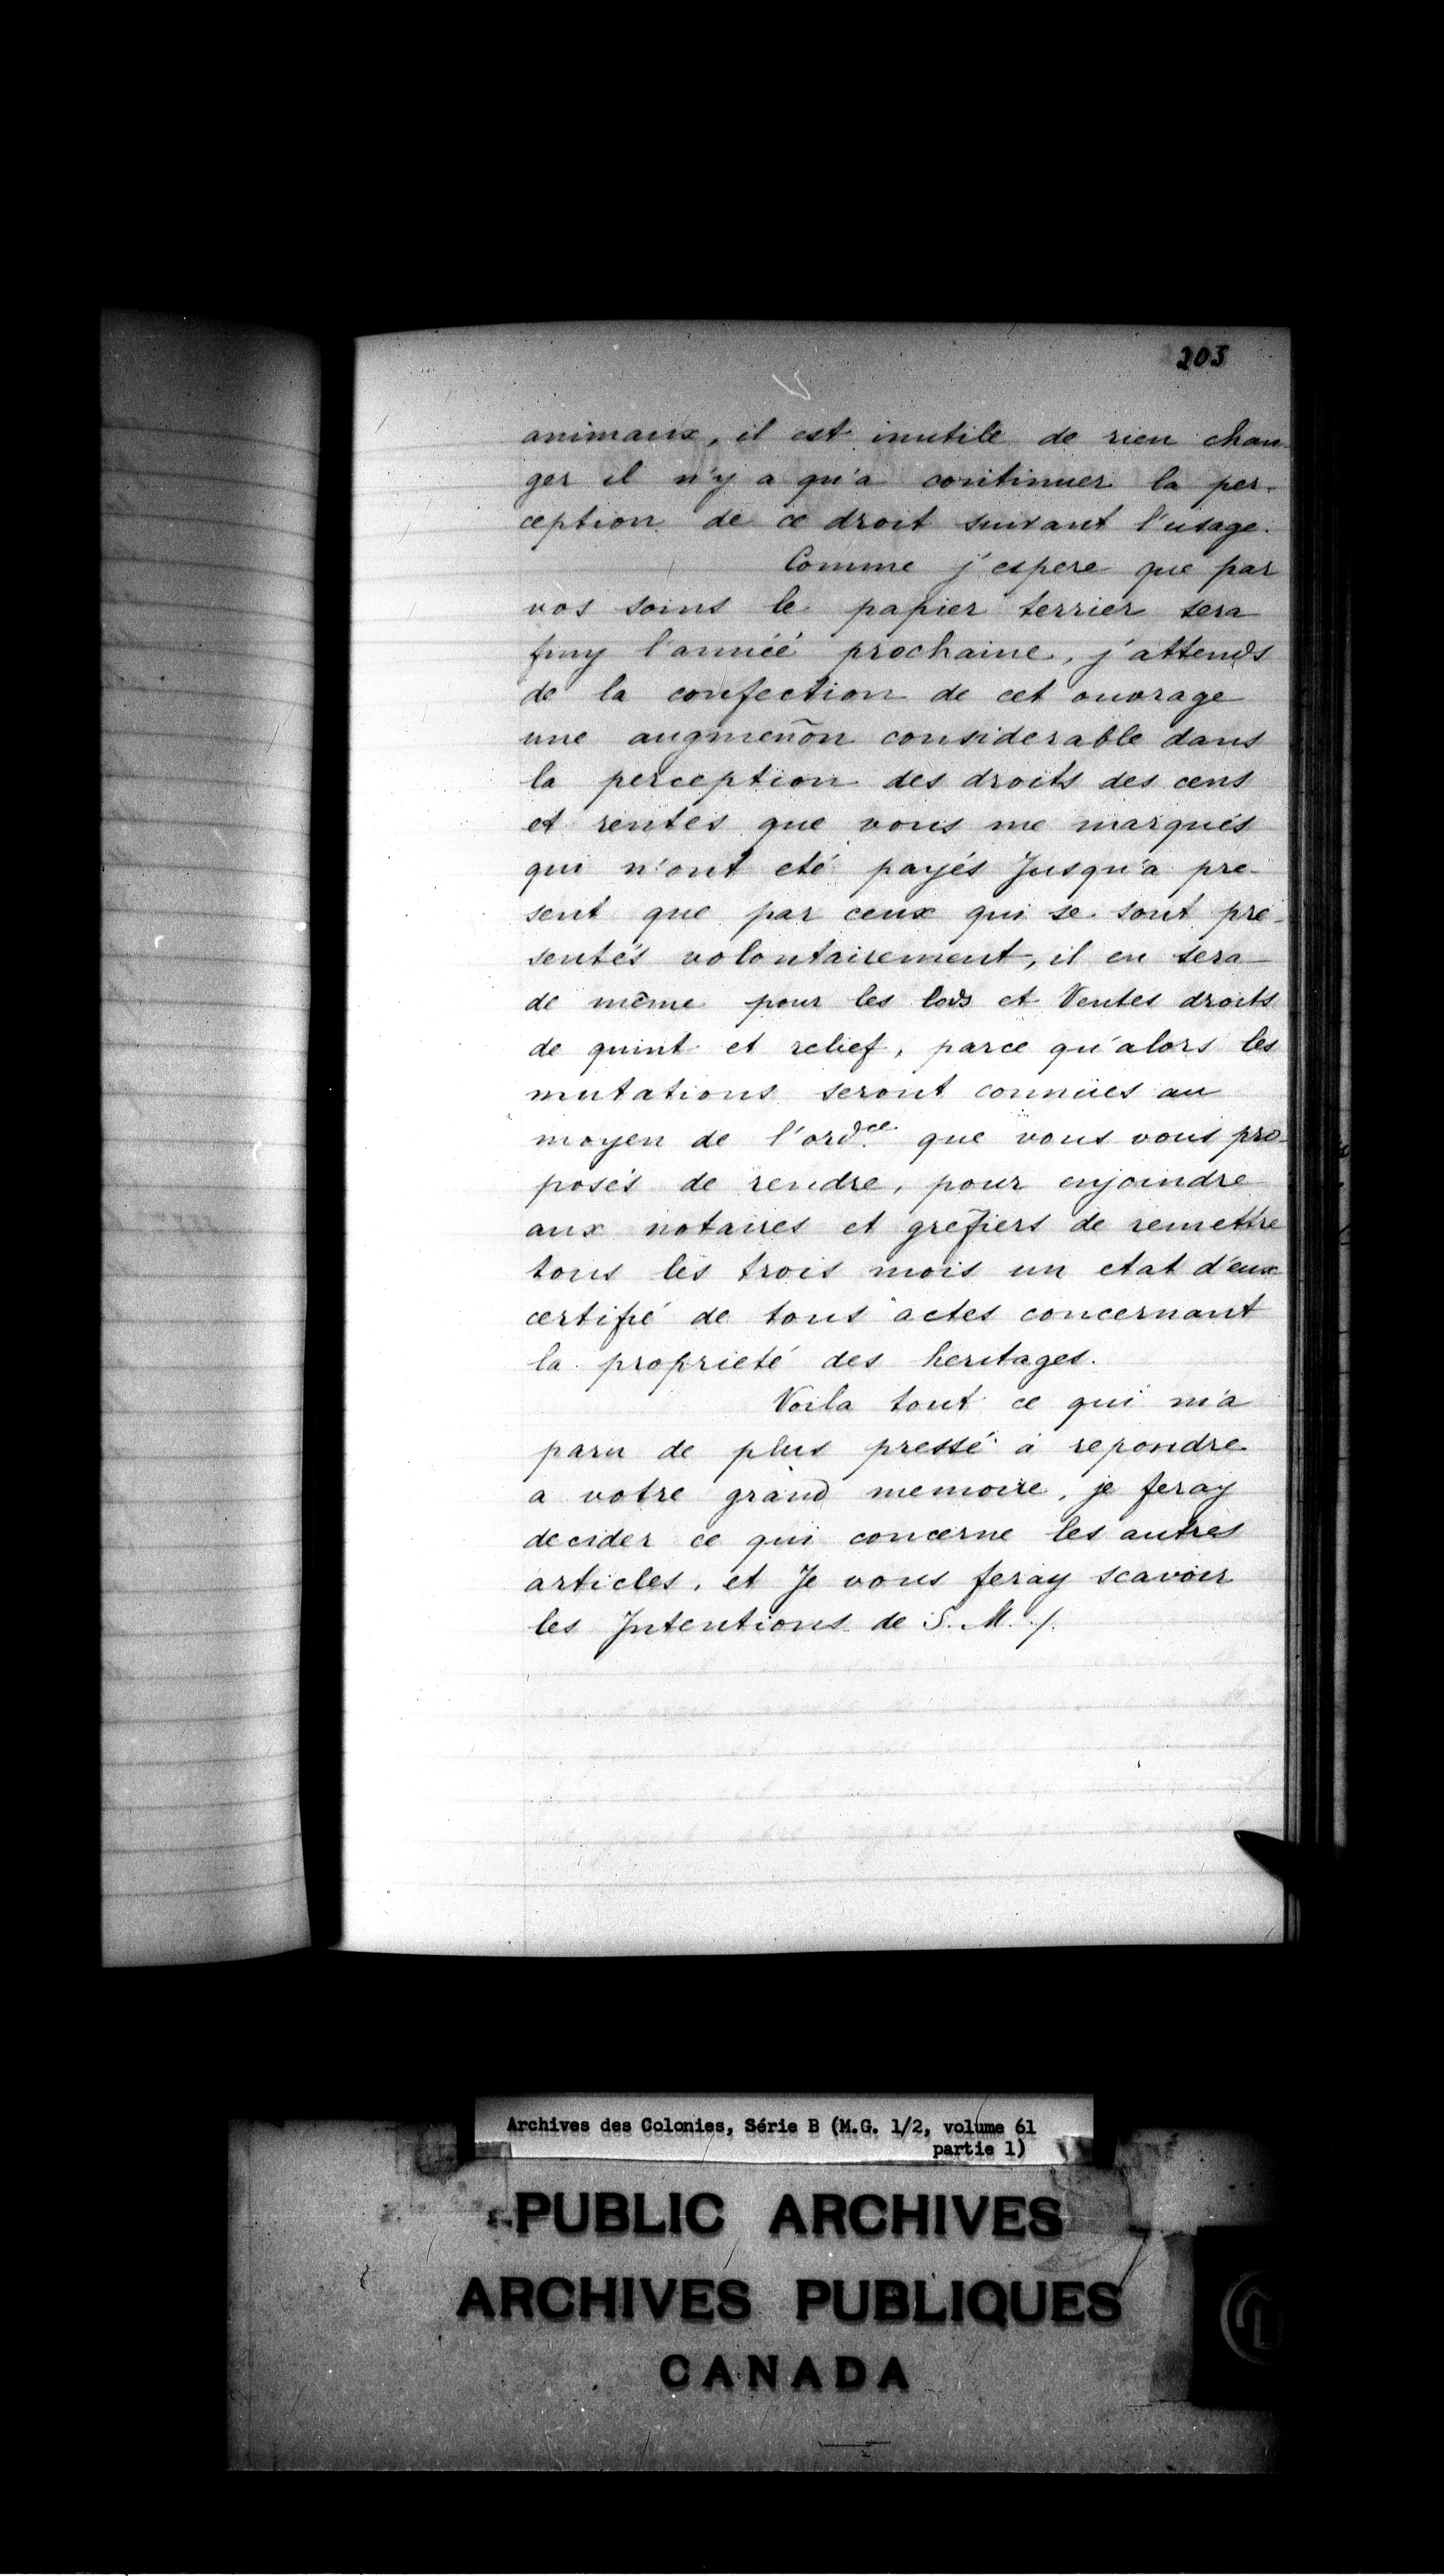 203
animaux, il est inutile de rien chan-
ger il n'y a qu'a continuer la per-
ception de ce droit suivant l'usage.
Comme j'espere que par
vos soins le papier terrier sera
finy l'année prochaine, j'attends
de la confection de cet ouvrage
une augmenõn considerable dans
la perception des droits des cens
et rentes que vous me marqués
qui n'ont eté payés Jusqu'a pre-
sent que par ceux qui se sont pre-
sentés volontairement, il en sera
de même pour les lods et Ventes droits
de quint et relief, parce qu'alors les
mutations seront connües au
moyen de l'ord.ce que vous vous pro-
posés de rendre, pour enjoindre
aux notaires et grefiers de remettre
tous les trois mois un etat d'eux
certifié de tous actes concernant
la proprieté des heritages.
Voila tout ce qui m'a
paru de plus pressé à repondre
a votre grand memoire, je feray
decider ce qui concerne les autres
articles, et Je vous feray scavoir
les Intentions de S. M. /.
Archives des Colonies, Série B (M.G. 1/2, volume 61
partie 1)
PUBLIC ARCHIVES
ARCHIVES PUBLIQUES
CANADA